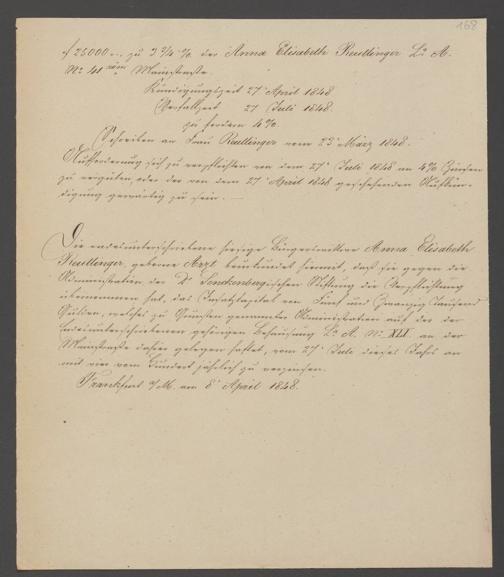 168
f 25000.-. zu 3 3/4 % der Anna Elisabeth Reutlinger La A.
No 41 röm. Mainstraße.
Kündigungszeit 27 April 1848
Verfallzeit 27 Juli 1848.
zu fordern 4 %.
Schreiben an Frau Reutlinger vom 23 März 1848.
Aufforderung sich zu verpflichten von dem 27 Juli 1848 an 4 % Zinsen
zu vergüten, oder der von dem 27 April 1848 geschehenden Aufkün-
digung gewärtig zu sein. —
Die endesunterschriebene hiesige Bürgerswittwe Anna Elisabeth
Reutlinger, geborne Arzt beurkundet hiermit, daß sie gegen die
Administration der Dr Senckenbergischen Stiftung die Verpflichtung
übernommen hat, das Insatzkapital von Fünf und Zwanzig Tausend
Gulden, welches zu Gunsten genannter Administration auf der der
Endesunterschriebenen gehörigen Behausung La A. No XLI an der
Mainstraße dahier gelegen haftet, vom 27 Juli dieses Jahrs an
mit vier vom Hundert jährlich zu verzinsen.
Frankfurt a/M. am 8 April 1848.